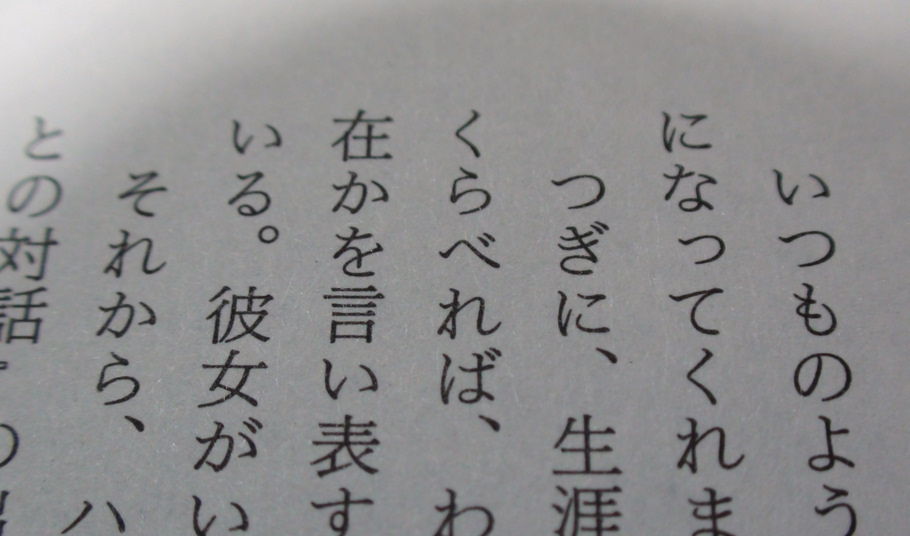 いつものよう
になってくれま
つぎに、生涯
くらべれば、わ
在かを言い表す
いる。彼女がい
それから、ハ
との対話